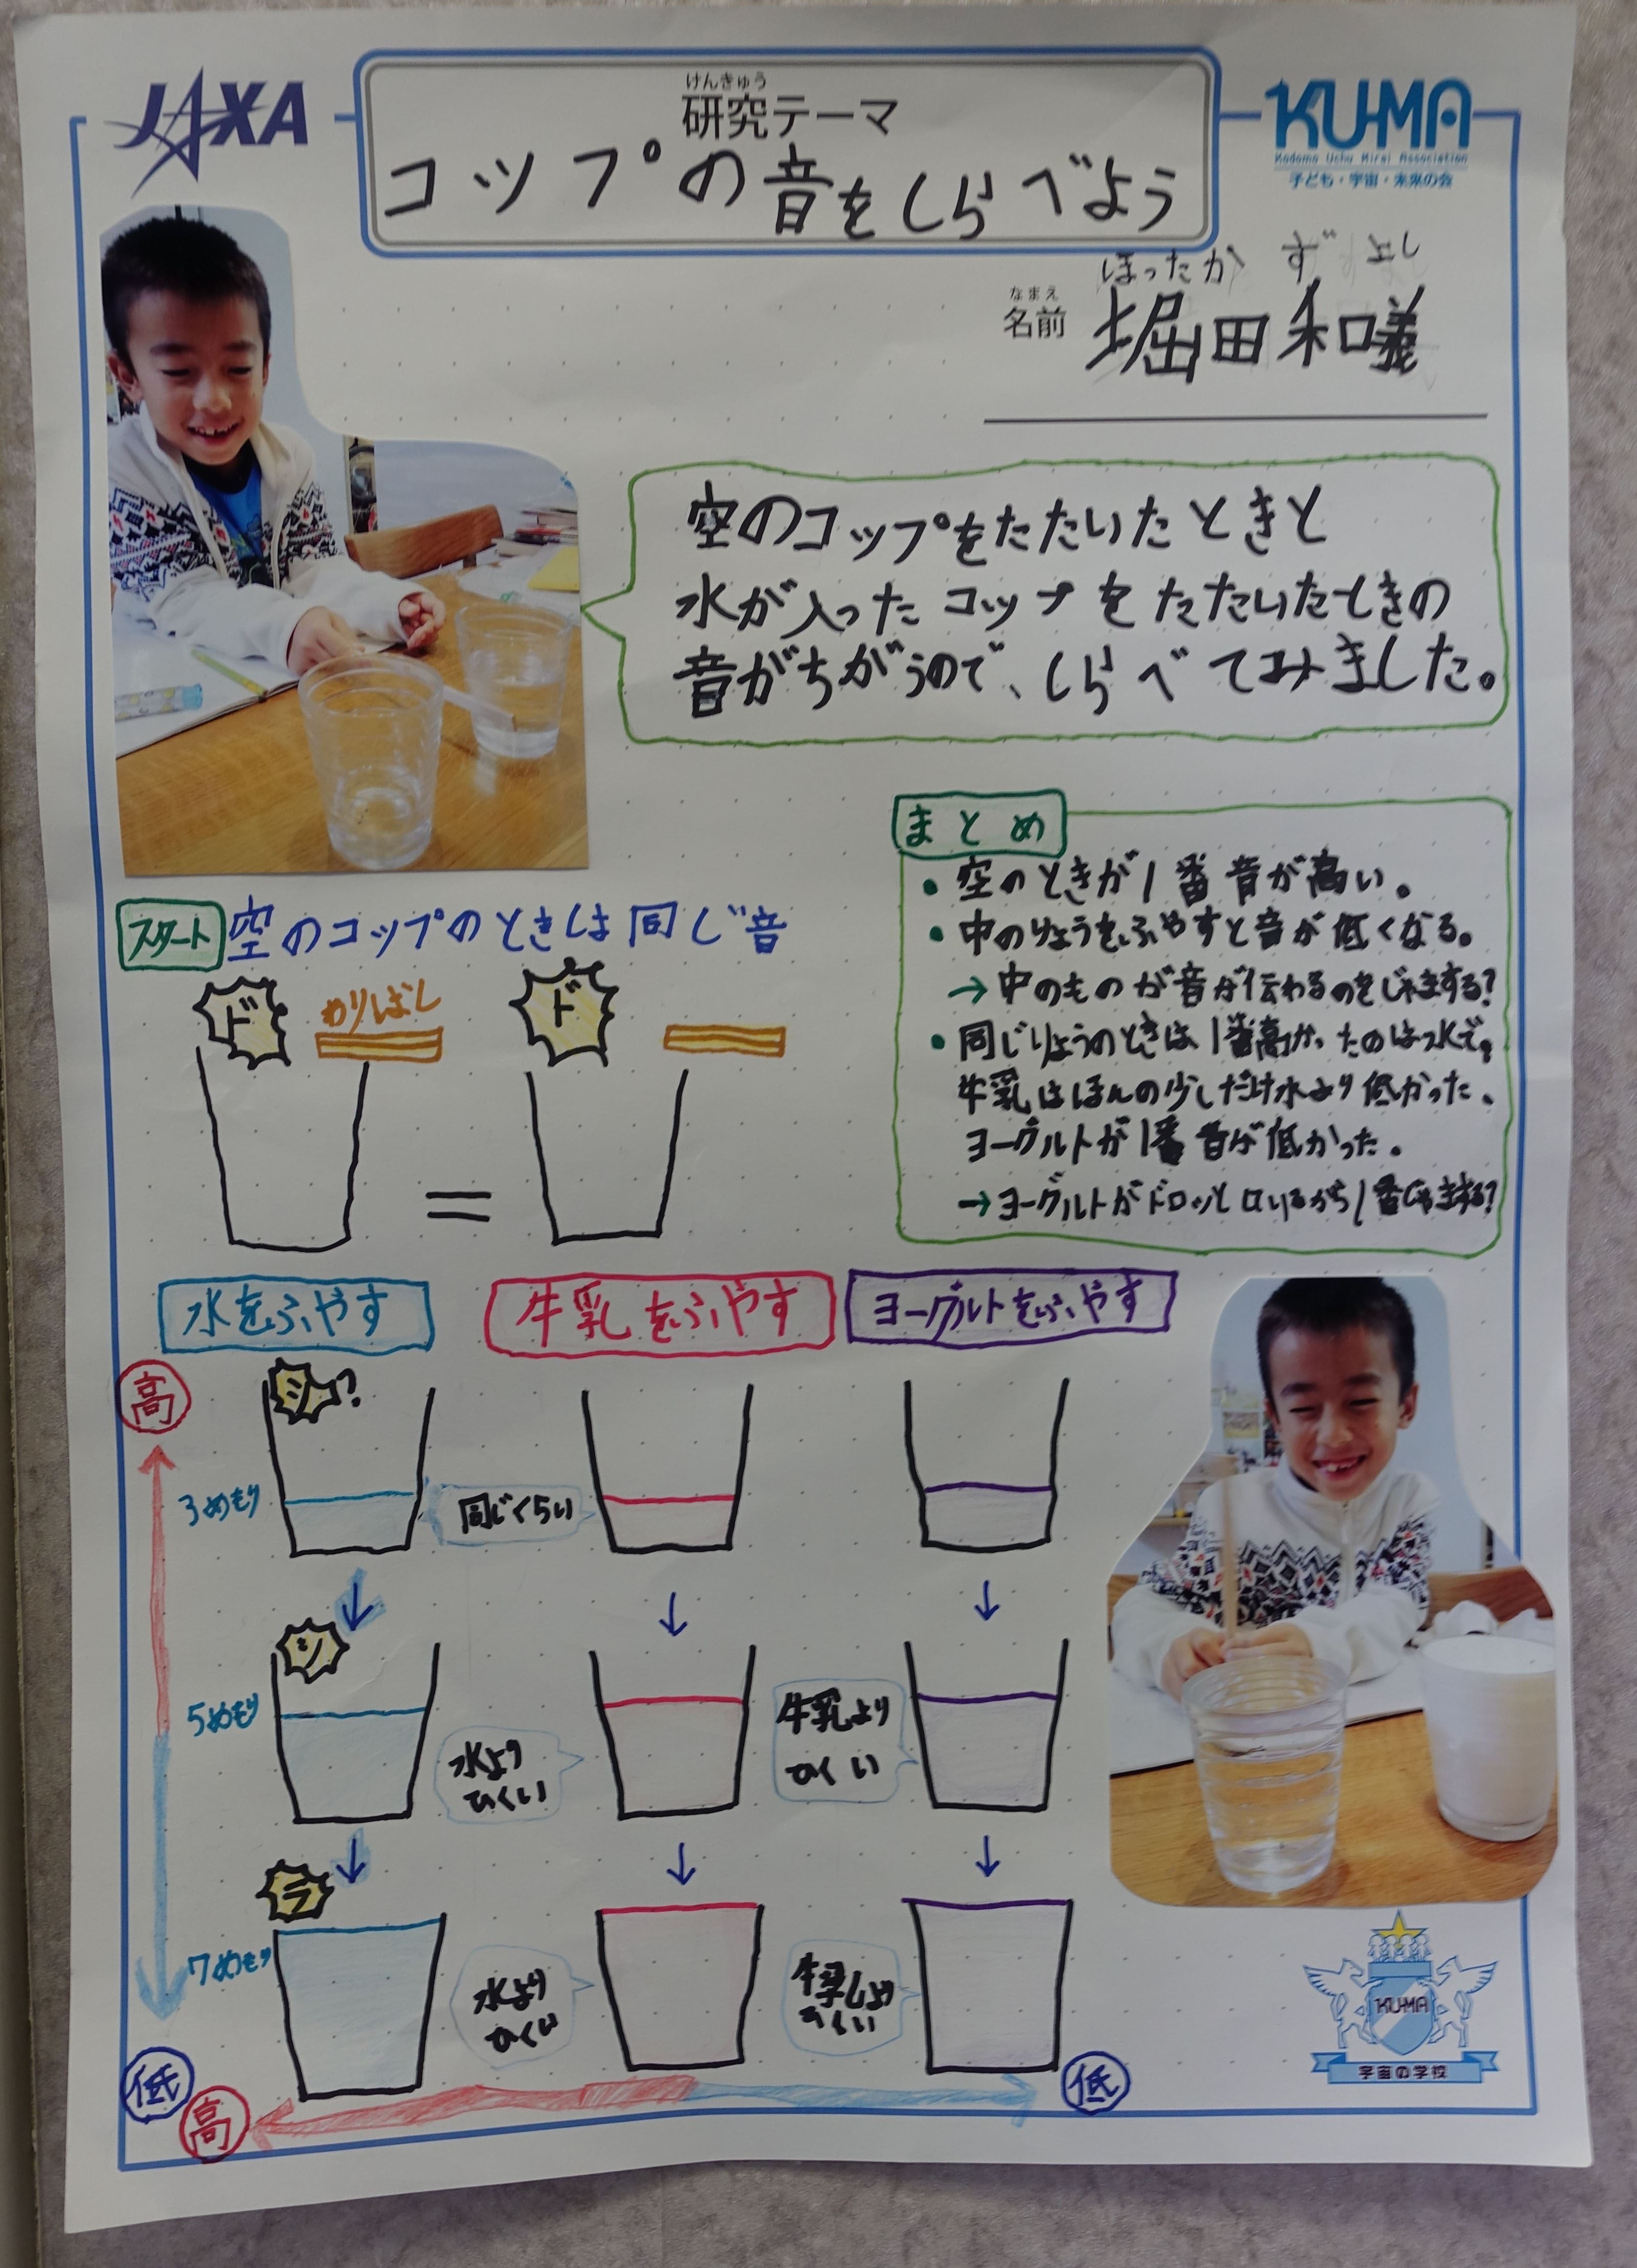 JAXA
けんきゅう
研究テーマ
コップの音をしらべよう
KU-MA
Kodomo Uchu Mirai Association
子ども・宇宙・未来の会
ほったかずよし
なまえ
名前 堀田和義
空のコップをたたいたときと
水が入ったコップをたたいたときの
音がちがうので、しらべてみました。
まとめ
・空のときが1番音が高い。
・中のりょうをふやすと音が低くなる。
→中のものが音が伝わるのをじゃまする?
・同じりょうのときは1番高かったのは水で。
牛乳はほんの少しだけ水より低かった、
ヨーグルトが1番音が低かった。
→ヨーグルトがドロッとしているから1番じゃまする?
スタート 空のコップのときは同じ音
ド わりばし ド
=
水をふやす 牛乳をふやす ヨーグルトをふやす
高
シ?
3めもり 同じくらい
↓ ↓ ↓
シ
5めもり 水より ひくい 牛乳より ひくい
↓ ↓ ↓
ラ
7めもり 水より ひくい 牛乳より ひくい
低
高 低
KU-MA
宇宙の学校